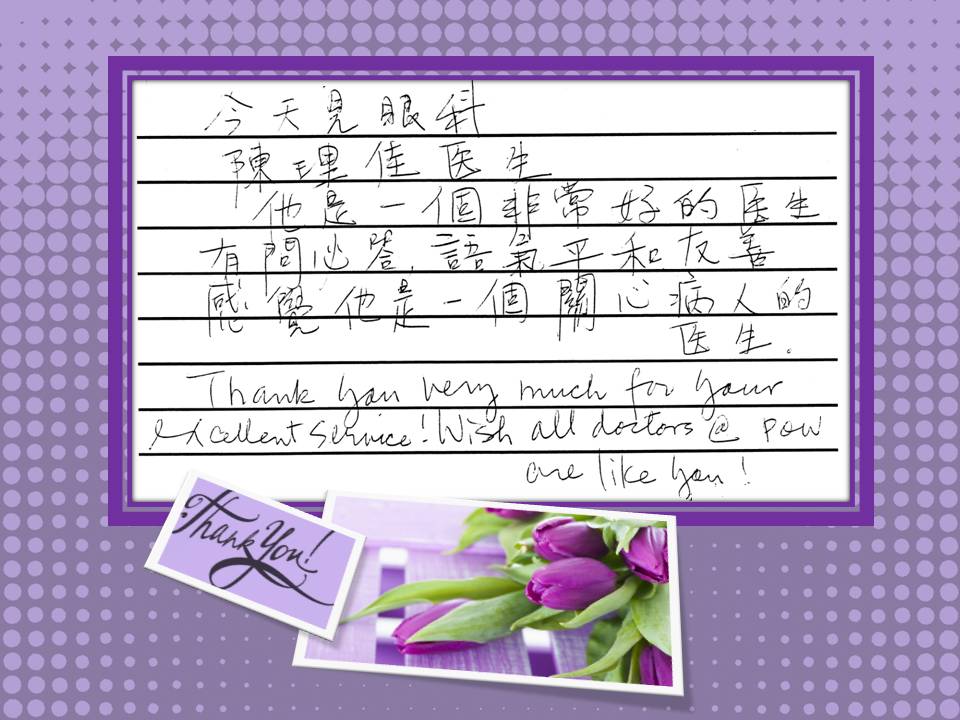 今天見眼科
陳理佳医生
他是一個非常好的医生
有問必答,語氣平和友善
感覺他是一個關心病人的
医生.
Thank you very much for your
excellent service! Wish all doctors @ POW
are like you!
Thank You!